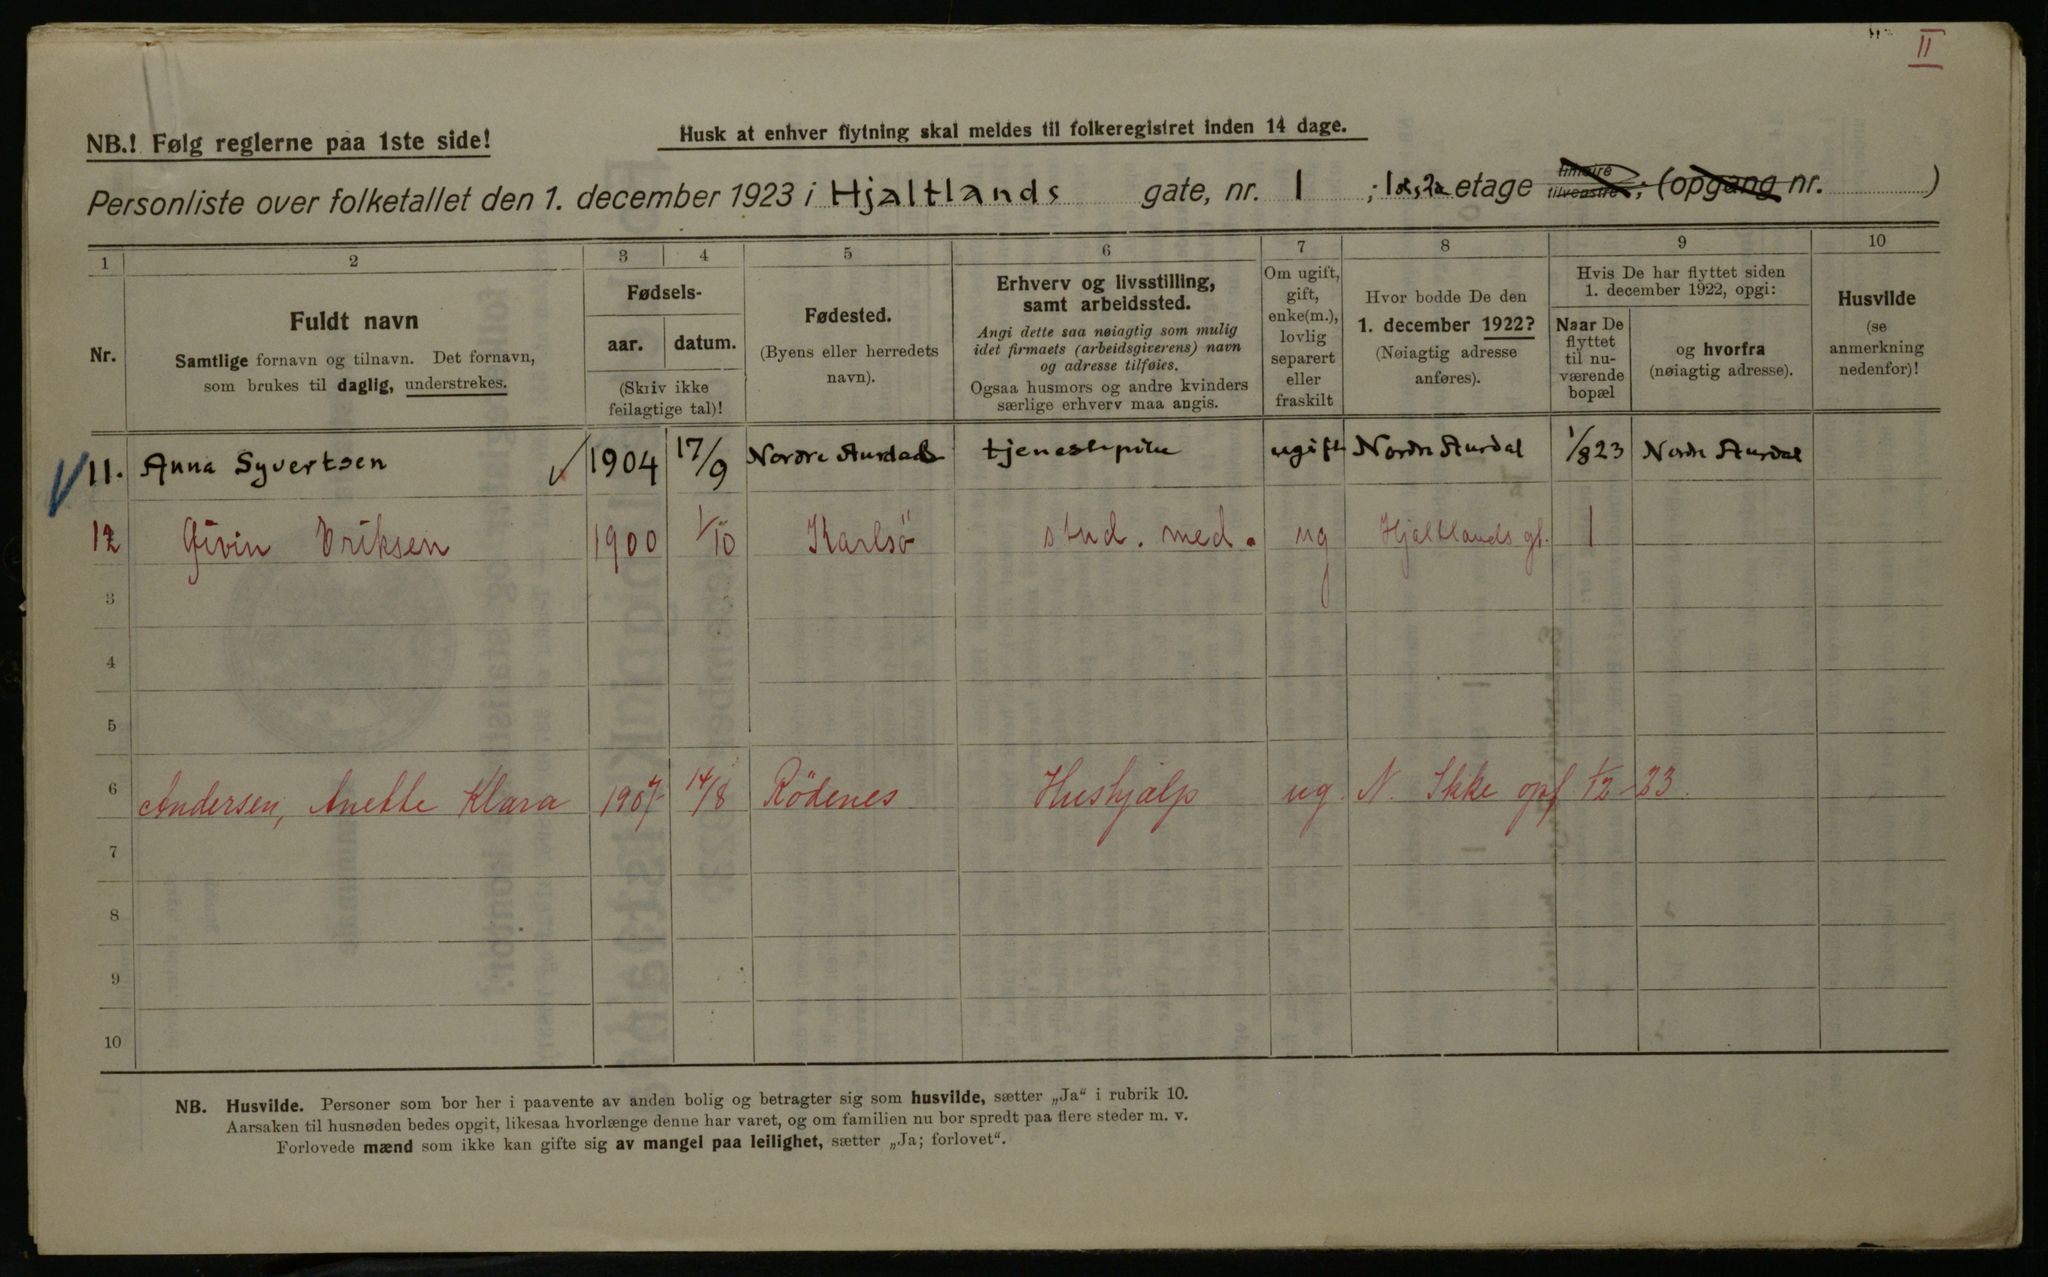 II
NB.! Følg reglerne paa 1ste side!
Husk at enhver flytning skal meldes til folkeregistret inden 14 dage.
Personliste over folketallet den 1. december 1923 i Hjaltlands gate, nr. 1 ; 1ste, 2den etage tilhøire tilvenstre; (opgang nr. )
1 2 3 4 5 6 7 8 9 10
Nr.
Fuldt navn
Samtlige fornavn og tilnavn. Det fornavn,
som brukes til daglig, understrekes.
Fødsels-
aar. datum.
(Skriv ikke
feilagtige tal)!
Fødested.
(Byens eller herredets
navn).
Erhverv og livsstilling,
samt arbeidssted.
Angi dette saa nøiagtig som mulig
idet firmaets (arbeidsgiverens) navn
og adresse tilføies.
Ogsaa husmors og andre kvinders
særlige erhverv maa angis.
Om ugift,
gift,
enke(m.),
lovlig
separert
eller
fraskilt
Hvor bodde De den
1. december 1922?
(Nøiagtig adresse
anføres).
Hvis De har flyttet siden
1. december 1922, opgi:
Naar De
flyttet
til nu-
værende
bopæl
og hvorfra
(nøiagtig adresse).
Husvilde
(se
anmerkning
nedenfor)!
11. Anna Syvertsen 1904 17/9 Nordre Aurdal tjenestepike ugift Nordre Aurdal 1/8 23 Nordre Aurdal
12 Eriksen 1900 1/10 Karlsö stud. med. ug Hjaltlands gt. 1
3
4
5
6 Andersen, Anette Klara 1907 14/8 Rödenes Hushjælp ug. N. Ikke opf 1/12-23.
7
8
9
10
NB. Husvilde. Personer som bor her i paavente av anden bolig og betragter sig som husvilde, sætter „Ja“ i rubrik 10.
Aarsaken til husnøden bedes opgit, likesaa hvorlænge denne har varet, og om familien nu bor spredt paa flere steder m. v.
Forlovede mænd som ikke kan gifte sig av mangel paa leilighet, sætter „Ja; forlovet“.